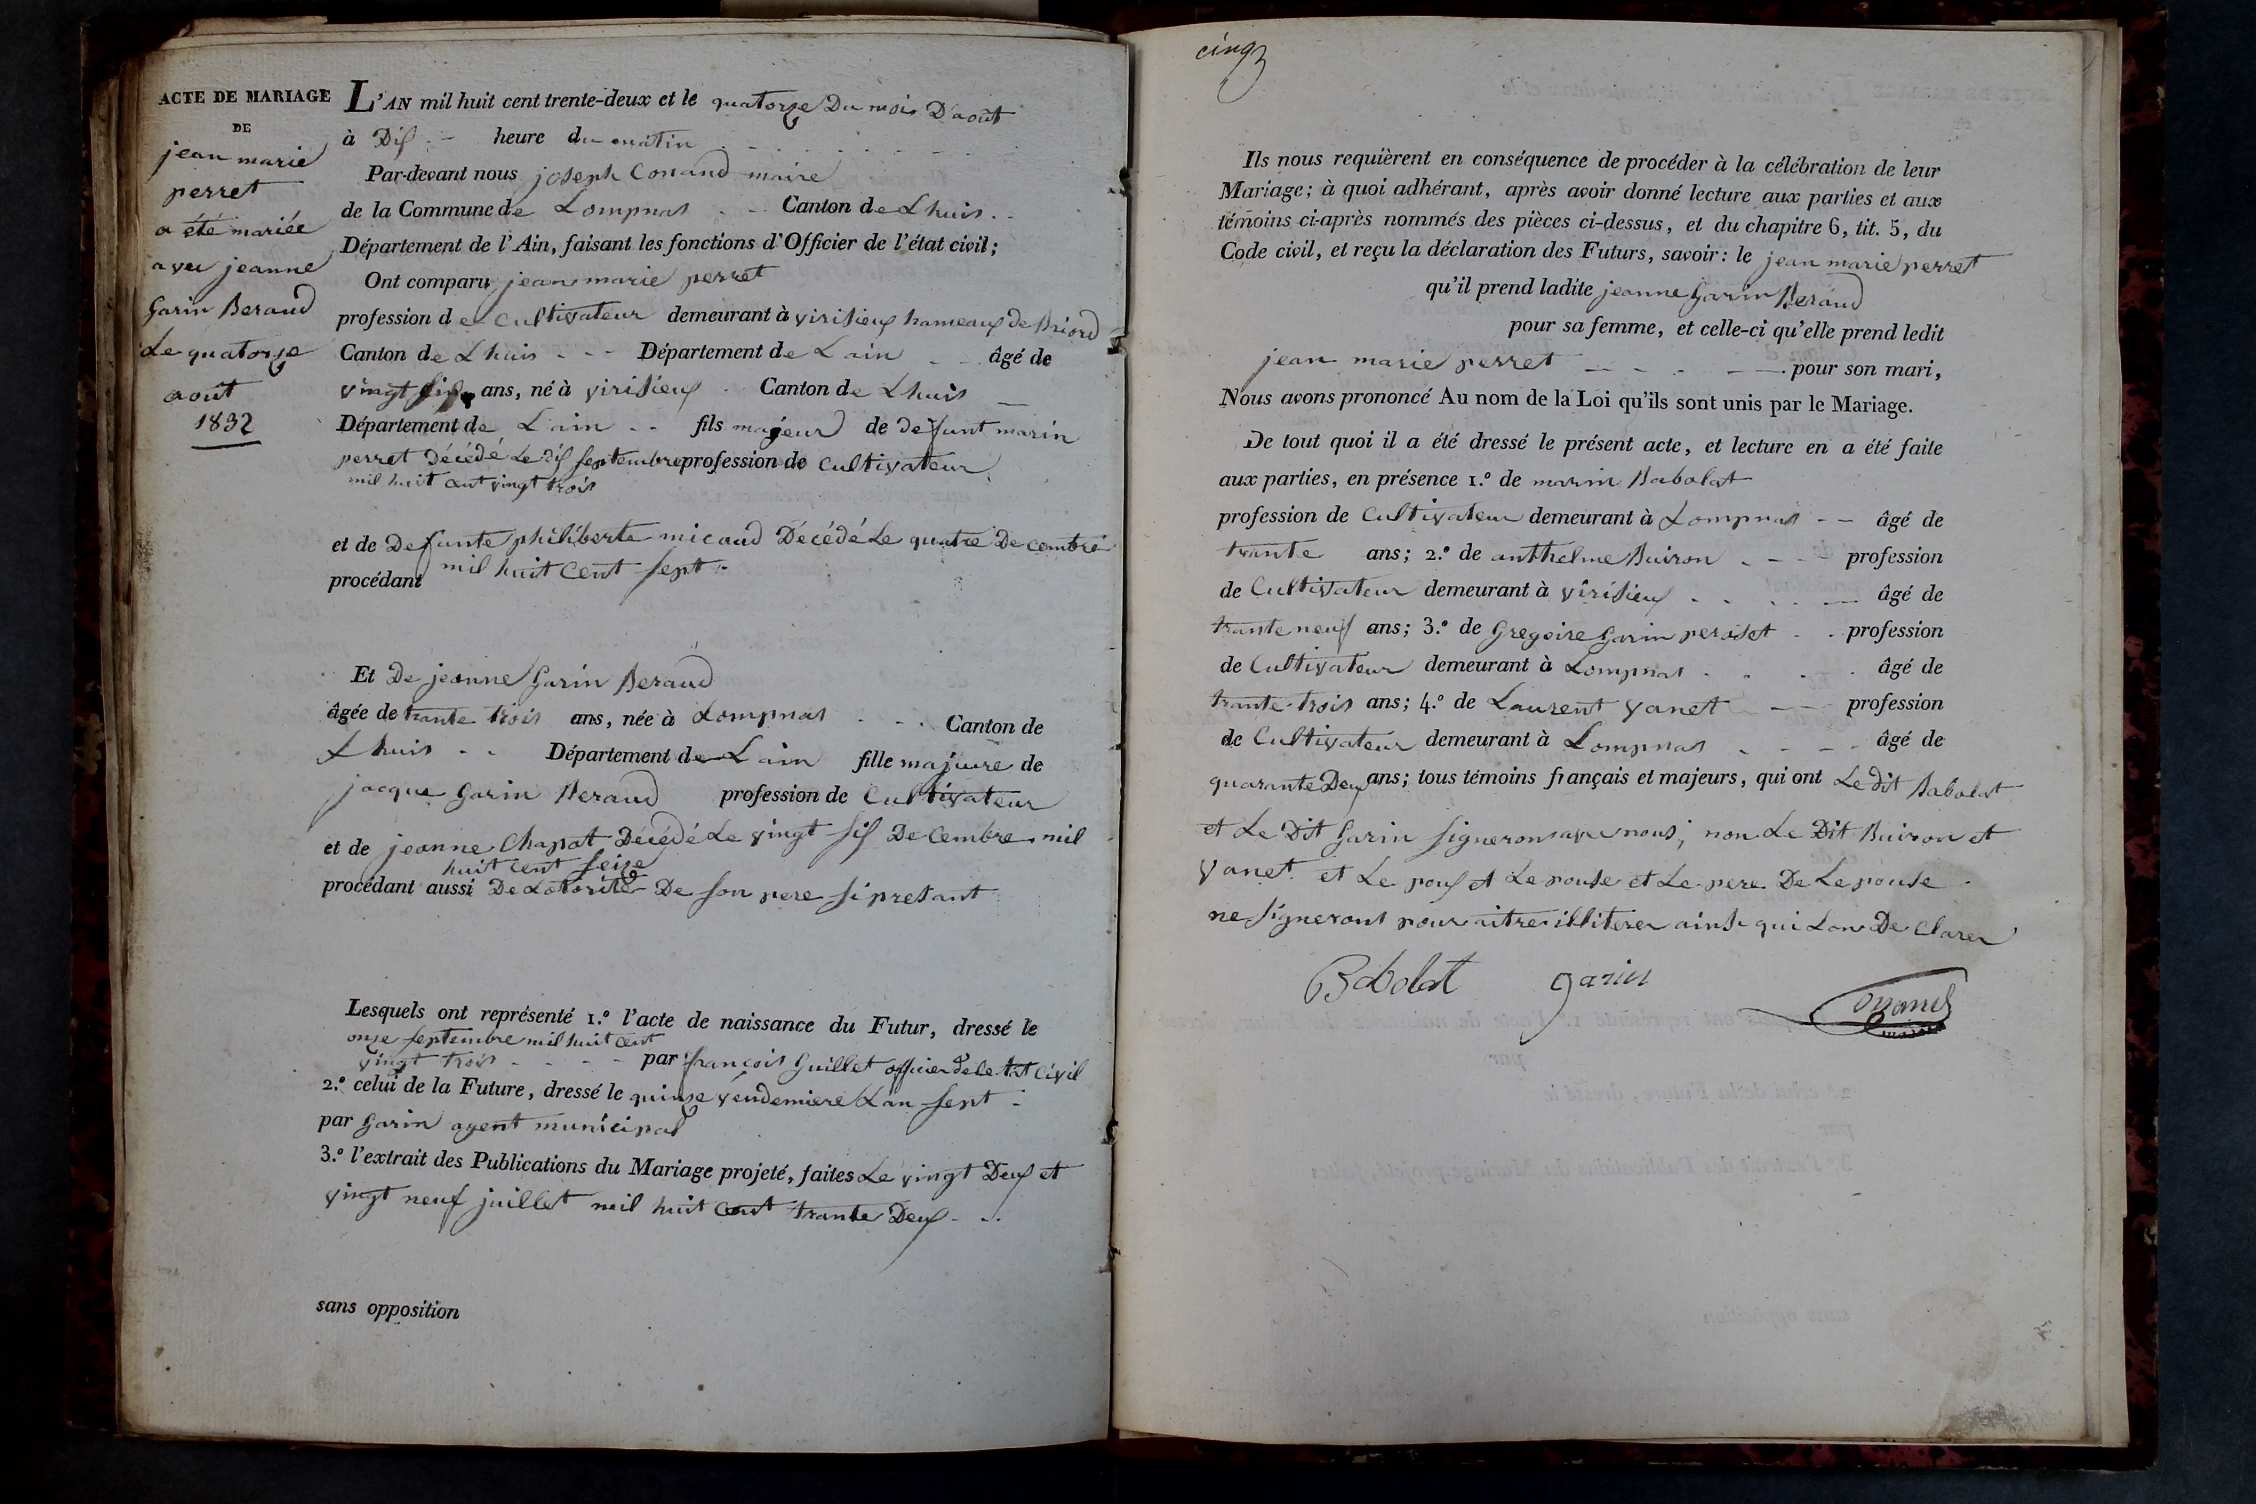 ACTE DE MARIAGE
DE
jean marie
perret
a été mariée
avec jeanne
Garin Beraud
Le quatorze
aout
1832
L'AN mil huit cent trente-deux et le quatorze Du mois D'août
à Dis heure du matin
Par-devant nous joseph Conand maire
de la Commune de Lompnas Canton de Lhuis
Département de l'Ain, faisant les fonctions d'Officier de l'état civil;
Ont comparu jean marie perret
profession de Cultivateur demeurant à virisieux hameaux de Briord
Canton de Lhuis Département de Lain âgé de
vingt ans, né à virisieux Canton de Lhuis
Département de Lain fils majeur de defunt marin
perret Décédé Le dis septembre profession de Cultivateur
mil huit cent vingt trois
et de Defunte philiberte micaud Décédé Le quatre Decembre
mil huit Cent sept
procédant
Et De jeanne Garin Beraud
âgée de trante trois ans, née à Lompnas Canton de
Lhuis Département de Lain fille majeure de
jacque Garin Beraud profession de Cultivateur
et de jeanne Chapot Décédé Le vingt sis Decembre mil
huit cent seize
procédant aussi De Lotorité De son pere si presant
Lesquels ont représenté 1.º l'acte de naissance du Futur, dressé le
onse septembre mil huit cent
vingt trois par françois Guillet officier de le tat Civil
2.º celui de la Future, dressé le quinse vendemiere Lan sept
par Garin agent municipal
3.º l'extrait des Publications du Mariage projeté, faites Le vingt Deux et
vingt neuf juillet mil huit Cent trante Deux
sans opposition
cinq
Ils nous requièrent en conséquence de procéder à la célébration de leur
Mariage; à quoi adhérant, après avoir donné lecture aux parties et aux
témoins ci-après nommés des pièces ci-dessus, et du chapitre 6, tit. 5, du
Code civil, et reçu la déclaration des Futurs, savoir: le jean marie perret
qu'il prend ladite jeanne Garin Beraud
pour sa femme, et celle-ci qu'elle prend ledit
jean marie perret pour son mari,
Nous avons prononcé Au nom de la Loi qu'ils sont unis par le Mariage.
De tout quoi il a été dressé le présent acte, et lecture en a été faite
aux parties, en présence 1.º de marin Babolat
profession de Cultivateur demeurant à Lompnas âgé de
trante ans; 2.º de anthelme Buiron profession
de Cultivateur demeurant à virisieux âgé de
trante neuf ans; 3.º de Gregoire Garin peroset profession
de Cultivateur demeurant à Lompnas âgé de
trante trois ans; 4.º de Laurent vanet profession
de Cultivateur demeurant à Lompnas âgé de
quarante Deux ans; tous témoins français et majeurs, qui ont Le dit Babolat
et Le Dit Garin signeron avec nous; non Le Dit Buiron et
vanet et Le poux et Le pouse et Le pere De Le pouse
ne signeront pour aitre illiterer ainsi qui Lon De Clarer
Babolat Garin
Conand
maire